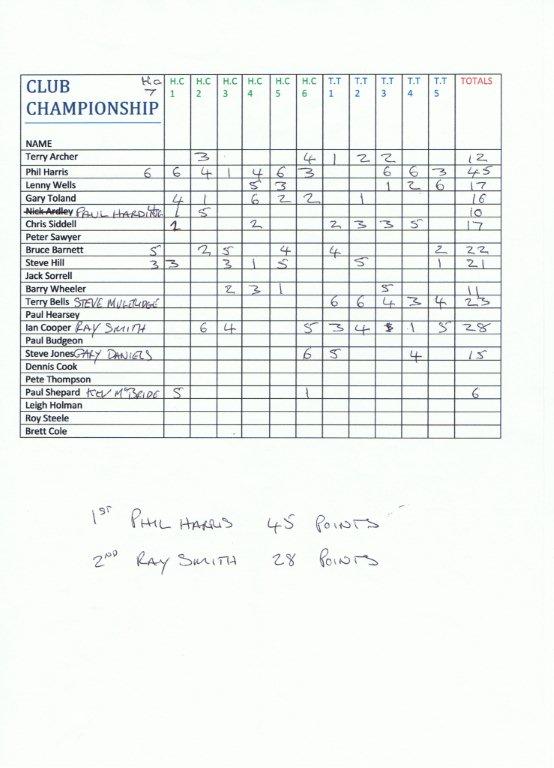 CLUB CHAMPIONSHIP H.C 7 H.C 1 H.C 2 H.C 3 H.C 4 H.C 5 H.C 6 T.T 1 T.T 2 T.T 3 T.T 4 T.T 5 TOTALS
NAME
Terry Archer 3 4 1 2 2 12
Phil Harris 6 6 4 1 4 6 3 6 6 3 45
Lenny Wells 5 3 1 2 6 17
Gary Toland 4 1 6 2 2 1 16
Nick Ardley PAUL HARDING 4 1 5 10
Chris Siddell 1 2 2 3 3 5 17
Peter Sawyer
Bruce Barnett 5 2 5 4 4 2 22
Steve Hill 3 3 3 1 5 5 1 21
Jack Sorrell
Barry Wheeler 2 3 1 5 11
Terry Bells STEVE MULRIDGE 6 6 4 3 4 23
Paul Hearsey
Ian Cooper RAY SMITH 6 4 5 3 4 1 5 28
Paul Budgeon
Steve Jones GARY DANIELS 6 5 4 15
Dennis Cook
Pete Thompson
Paul Shepard KEV McBRIDE 5 1 6
Leigh Holman
Roy Steele
Brett Cole
1ST PHIL HARRIS 45 POINTS
2ND RAY SMITH 28 POINTS